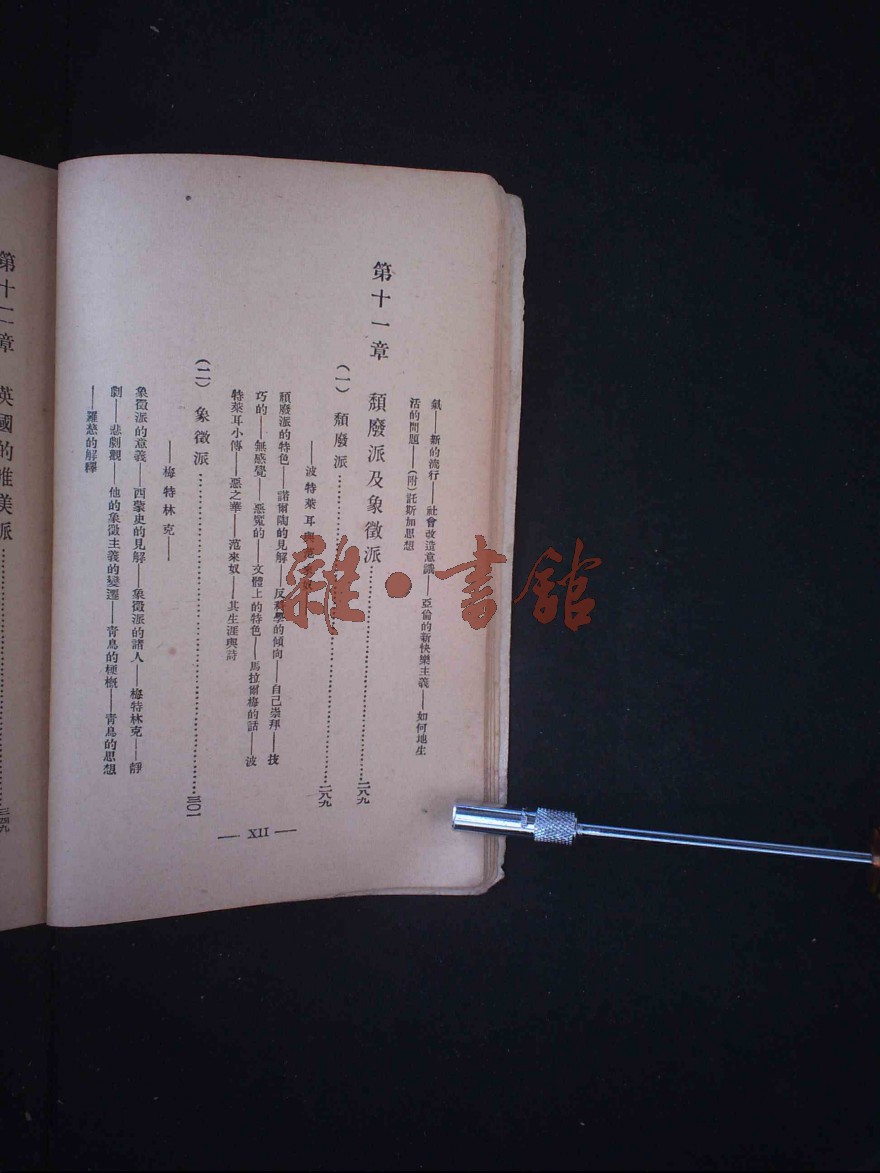 氣——新的流行——社會改造意識——亞倫的新快樂主義——如何地生
活的問題——(附)託斯加思想
第十一章　頹廢派及象徵派…………二八九
(一)　頹廢派…………二八九
——波特萊耳與范
頹廢派的特色——諾爾陶的見解——反科學的傾向——自己崇拜——技
巧的——無感覺——惡魔的——文體上的特色——馬拉爾梅的話——波
特萊耳小傳——惡之華——范來奴——其生涯與詩
(二)　象徵派…………三〇一
——梅特林克——
象徵派的意義——西蒙史的見解——象徵派的諸人——梅特林克——靜
劇——悲劇觀——他的象徵主義的變遷——青鳥的梗概——青鳥的思想
——羅愁的解釋
— XII —
第十二章　英國的唯美派…………三四九
雜·書館